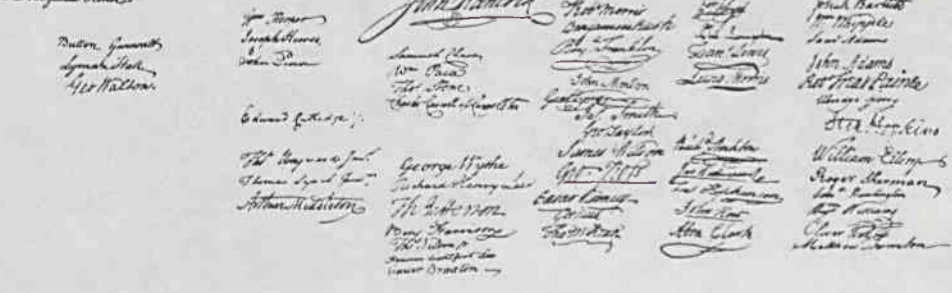 Button Gwinnett
Lyman Hall
Geo Walton.
Wm Hooper
Joseph Hewes,
John Penn
Edward Rutledge
Thos Heyward Junr.
Thomas Lynch Junr.
Arthur Middleton
John Hancock
Samuel Chase
Wm Paca
Thos Stone
Charles Carroll of Carrollton
George Wythe
Richard Henry Lee
Th Jefferson
Benj Harrison
Thos Nelson jr
Francis Lightfoot Lee
Carter Braxton
Robt Morris
Benjamin Rush
Benj Franklin
John Morton
Geo Clymer
Jas Smith
Geo Taylor
James Wilson
Geo Ross
Caesar Rodney
Geo Read
Tho M:Kean
Wm Floyd
Phil Livingston
Frans Lewis
Lewis Morris
Richd Stockton
Jno Witherspoon
Fras Hopkinson
John Hart
Abra Clark
Josiah Bartlett
Wm Whipple
Saml Adams
John Adams
Robt Treat Paine
Elbridge Gerry
Step Hopkins
William Ellery
Roger Sherman
Saml Huntington
Wm Williams
Oliver Wolcott
Matthew Thornton